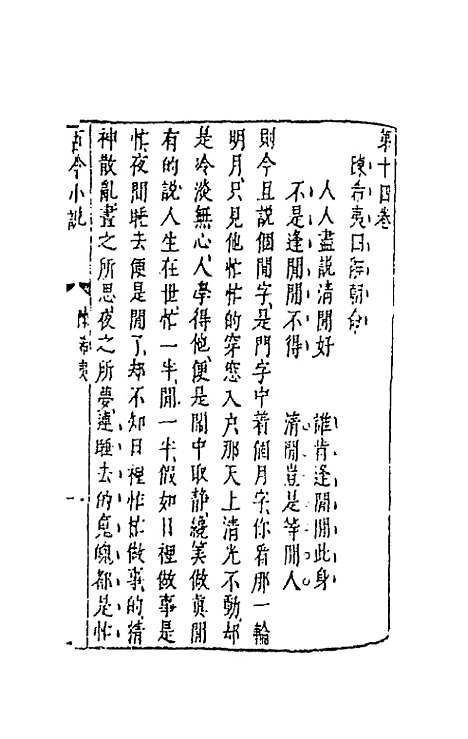 第十四卷
陳希夷四辭朝命
人人盡說清閒好　誰肯逢閒閒此身
不是逢閒閒不得　清閒豈是等閒人
則今且說個閒字是門字中着個月字你看那一輪
明月只見他忙忙的穿窓入户那天上清光不動却
是冷淡無心人學得他便是鬧中取静纔筭做眞閒
有的說人生在世忙一半閒一半假如日裡做事是
忙夜間睡去便是閒了却不知日裡忙忙做事的精
神散亂晝之所思夜之所夢連睡去的魂魄都是忙
古今小說　陳希夷　一